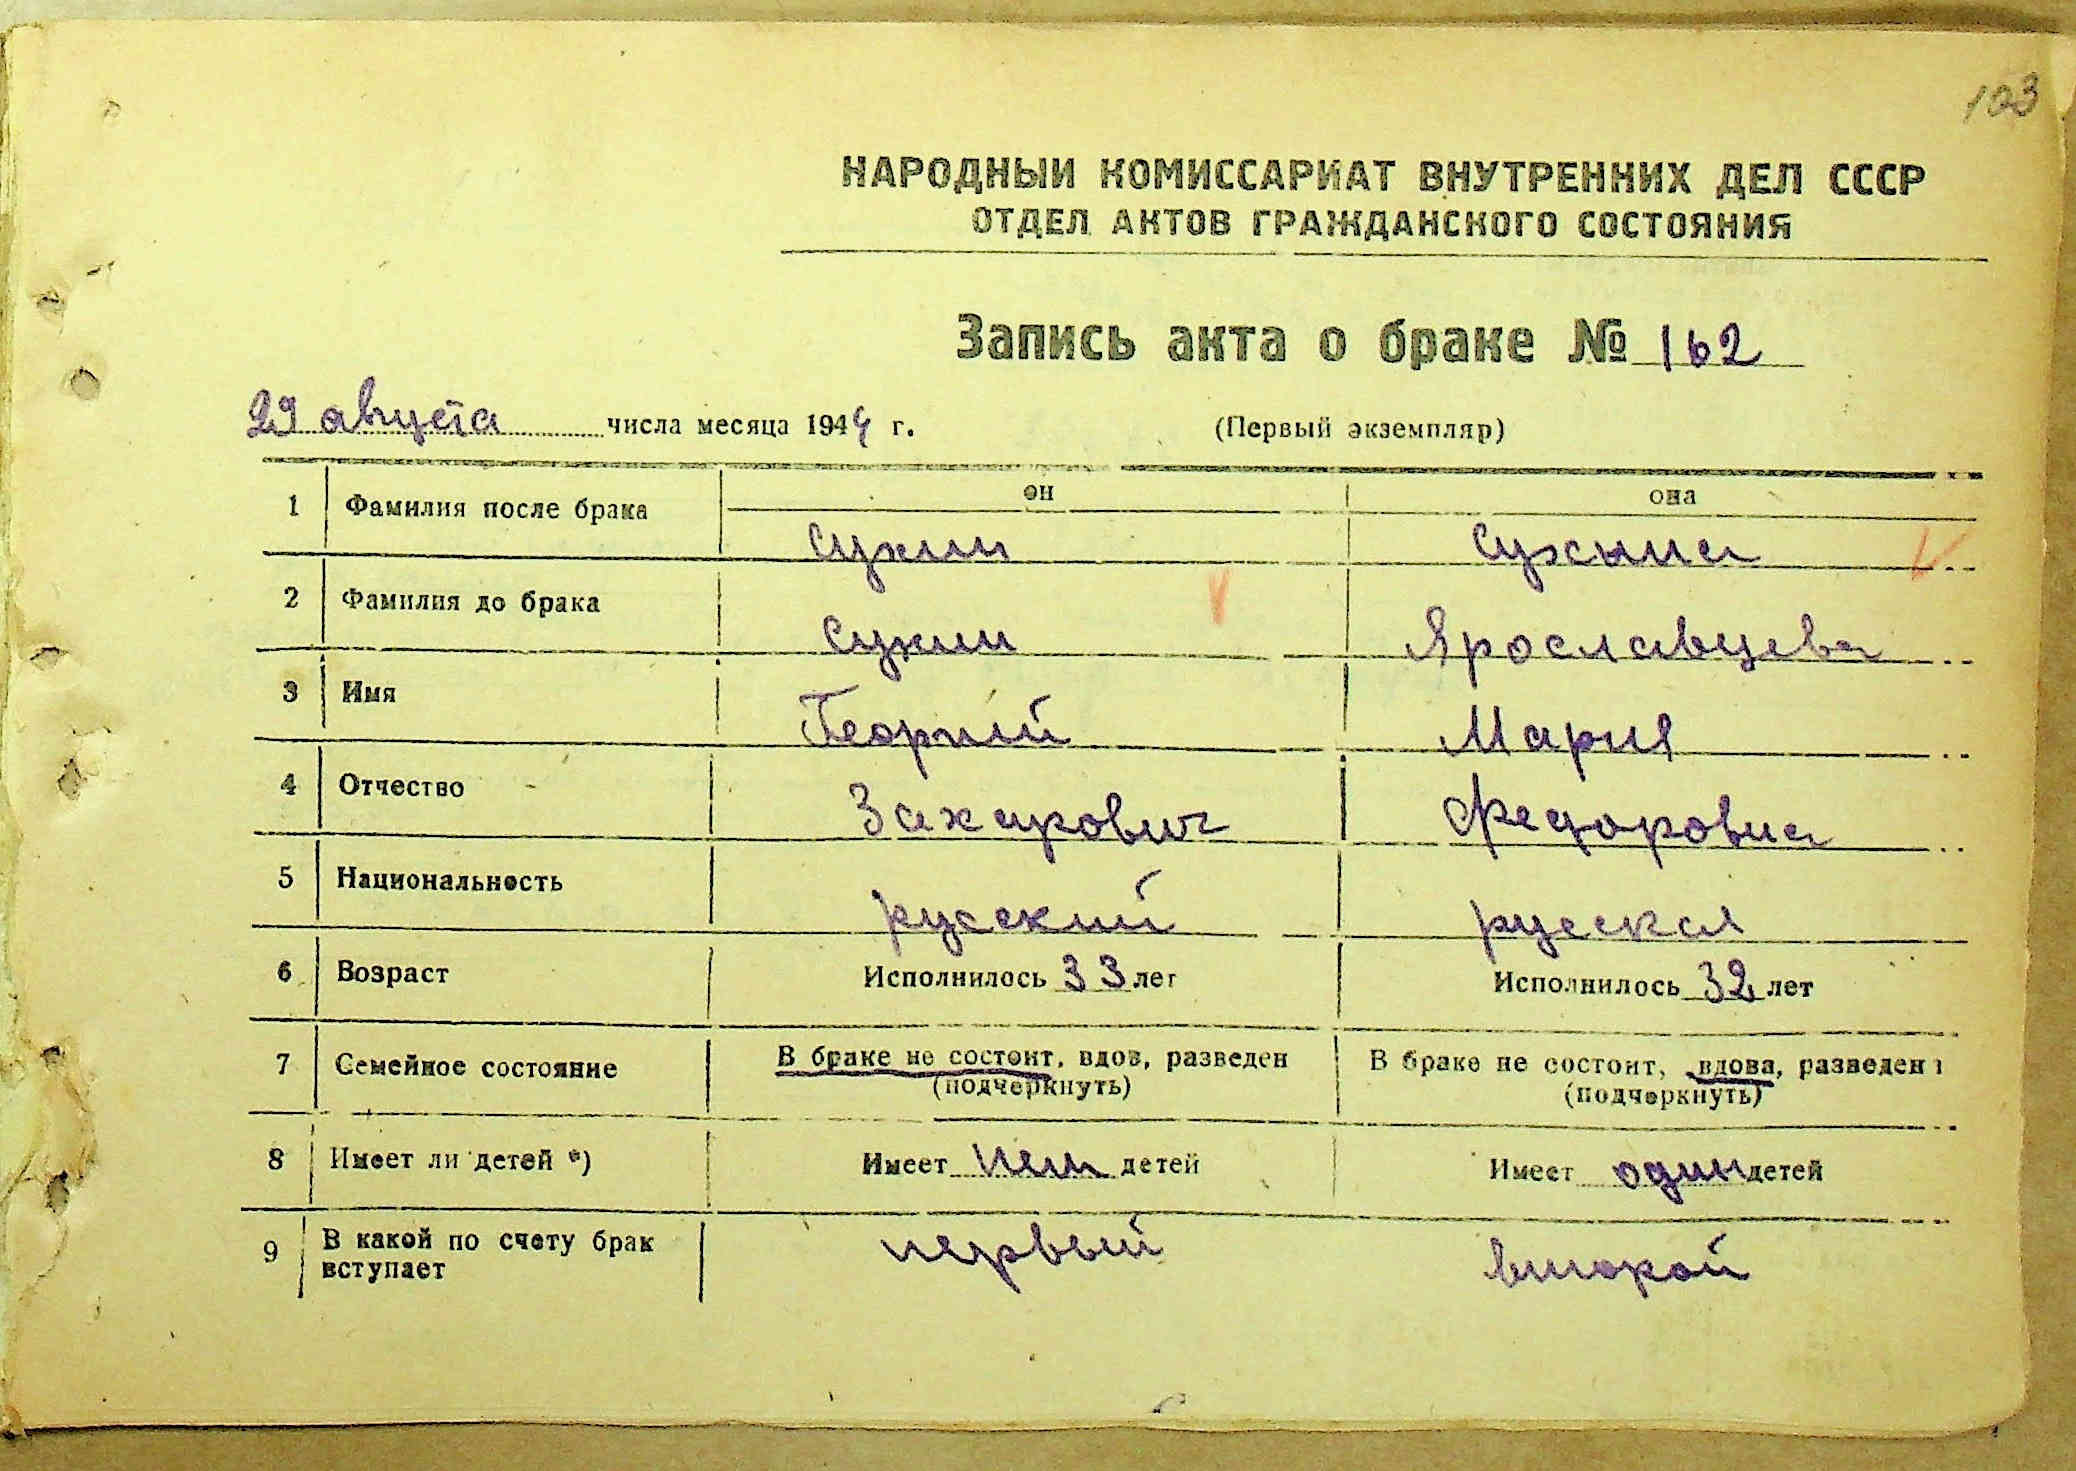 103
НАРОДНЫЙ КОМИССАРИАТ ВНУТРЕННИХ ДЕЛ СССР
ОТДЕЛ АКТОВ ГРАЖДАНСКОГО СОСТОЯНИЯ
Запись акта о браке № 162
29 августа числа месяца 1944 г. (Первый экземпляр)
он она
1 Фамилия после брака Сухин Сухина
2 Фамилия до брака Сухин Ярославцева
3 Имя Георгий Мария
4 Отчество Захарович Федоровна
5 Национальность русский русская
6 Возраст Исполнилось 33 лет Исполнилось 32 лет
7 Семейное состояние В браке не состоит, вдов, разведен (подчеркнуть) В браке не состоит, вдова, разведена (подчеркнуть)
8 Имеет ли детей *) Имеет нет детей Имеет один детей
9 В какой по счету брак вступает первый второй